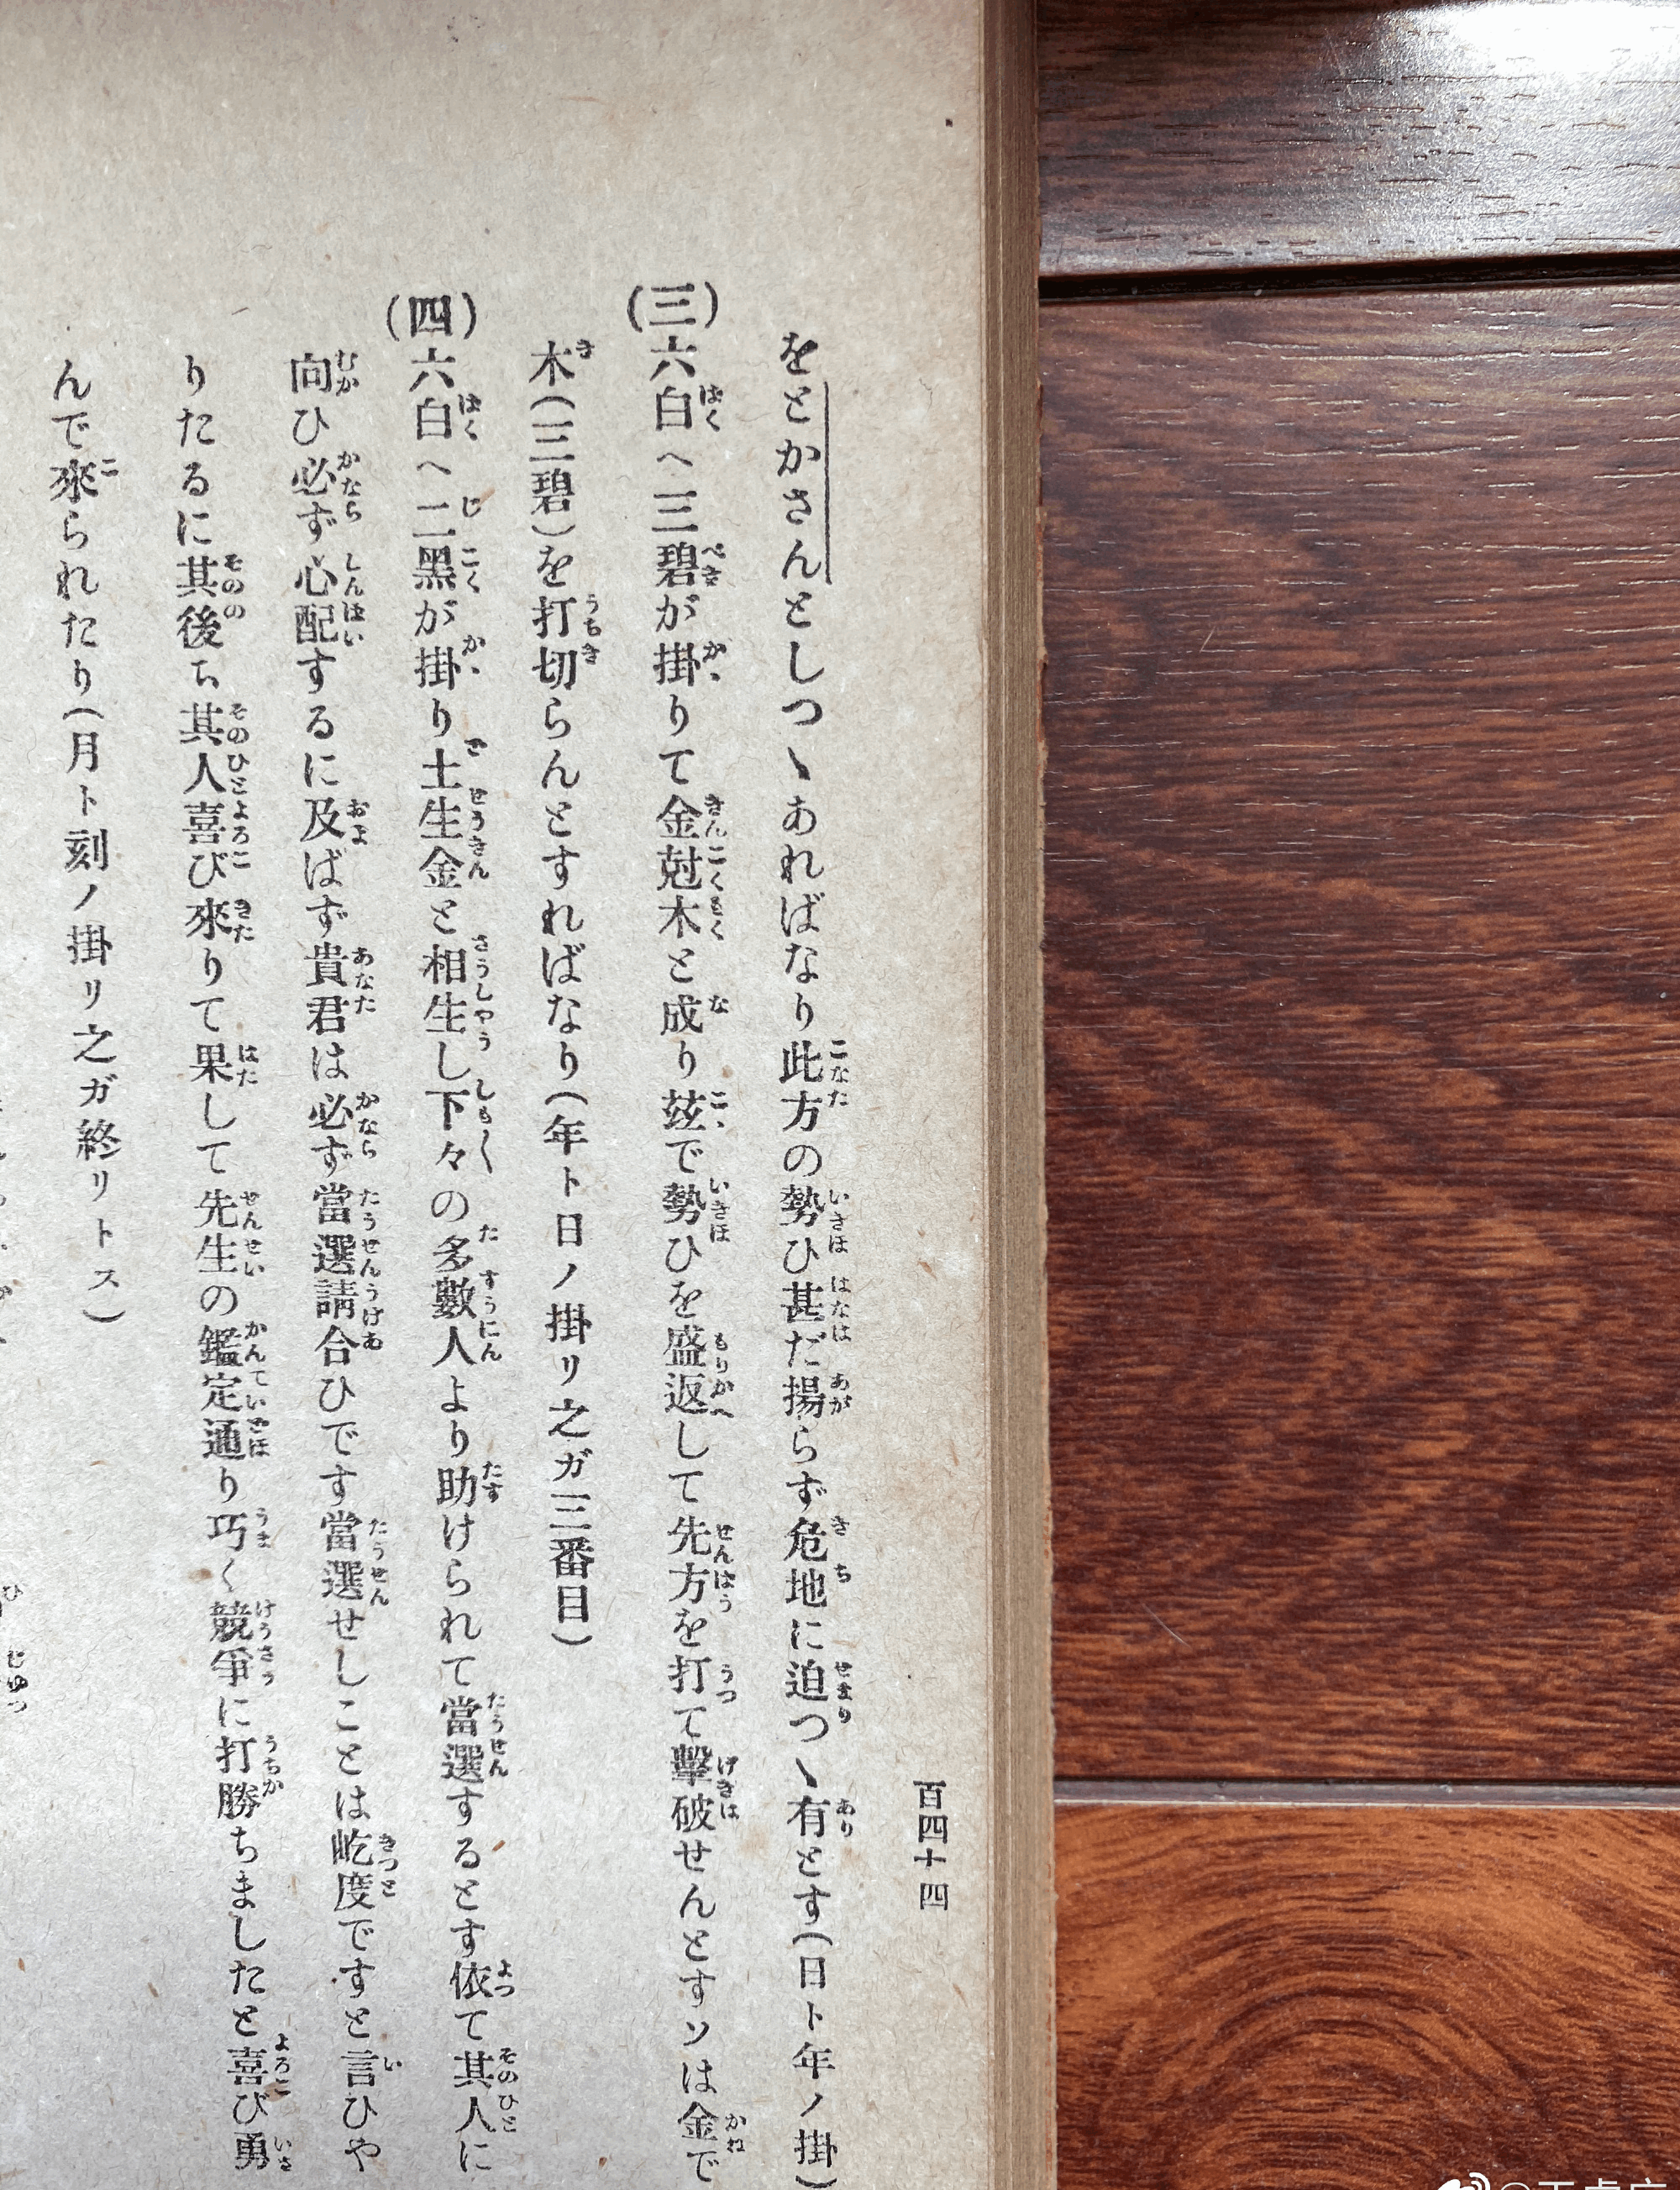 百四十四
をとかさんとしつゝあればなり此方の勢ひ甚だ揚らず危地に迫つゝ有とす(日ト年ノ掛)
(三)六白へ三碧が掛りて金尅木と成り玆で勢ひを盛返して先方を打て擊破せんとすソは金で
木(三碧)を打切らんとすればなり(年ト日ノ掛リ之ガ三番目)
(四)六白へ二黑が掛り土生金と相生し下々の多數人より助けられて當選するとす依て其人に
向ひ必ず心配するに及ばず貴君は必ず當選請合ひです當選せしことは屹度ですと言ひや
りたるに其後ち其人喜び來りて果して先生の鑑定通り巧く競爭に打勝ちましたと喜び勇
んで來られたり(月ト刻ノ掛リ之ガ終リトス)